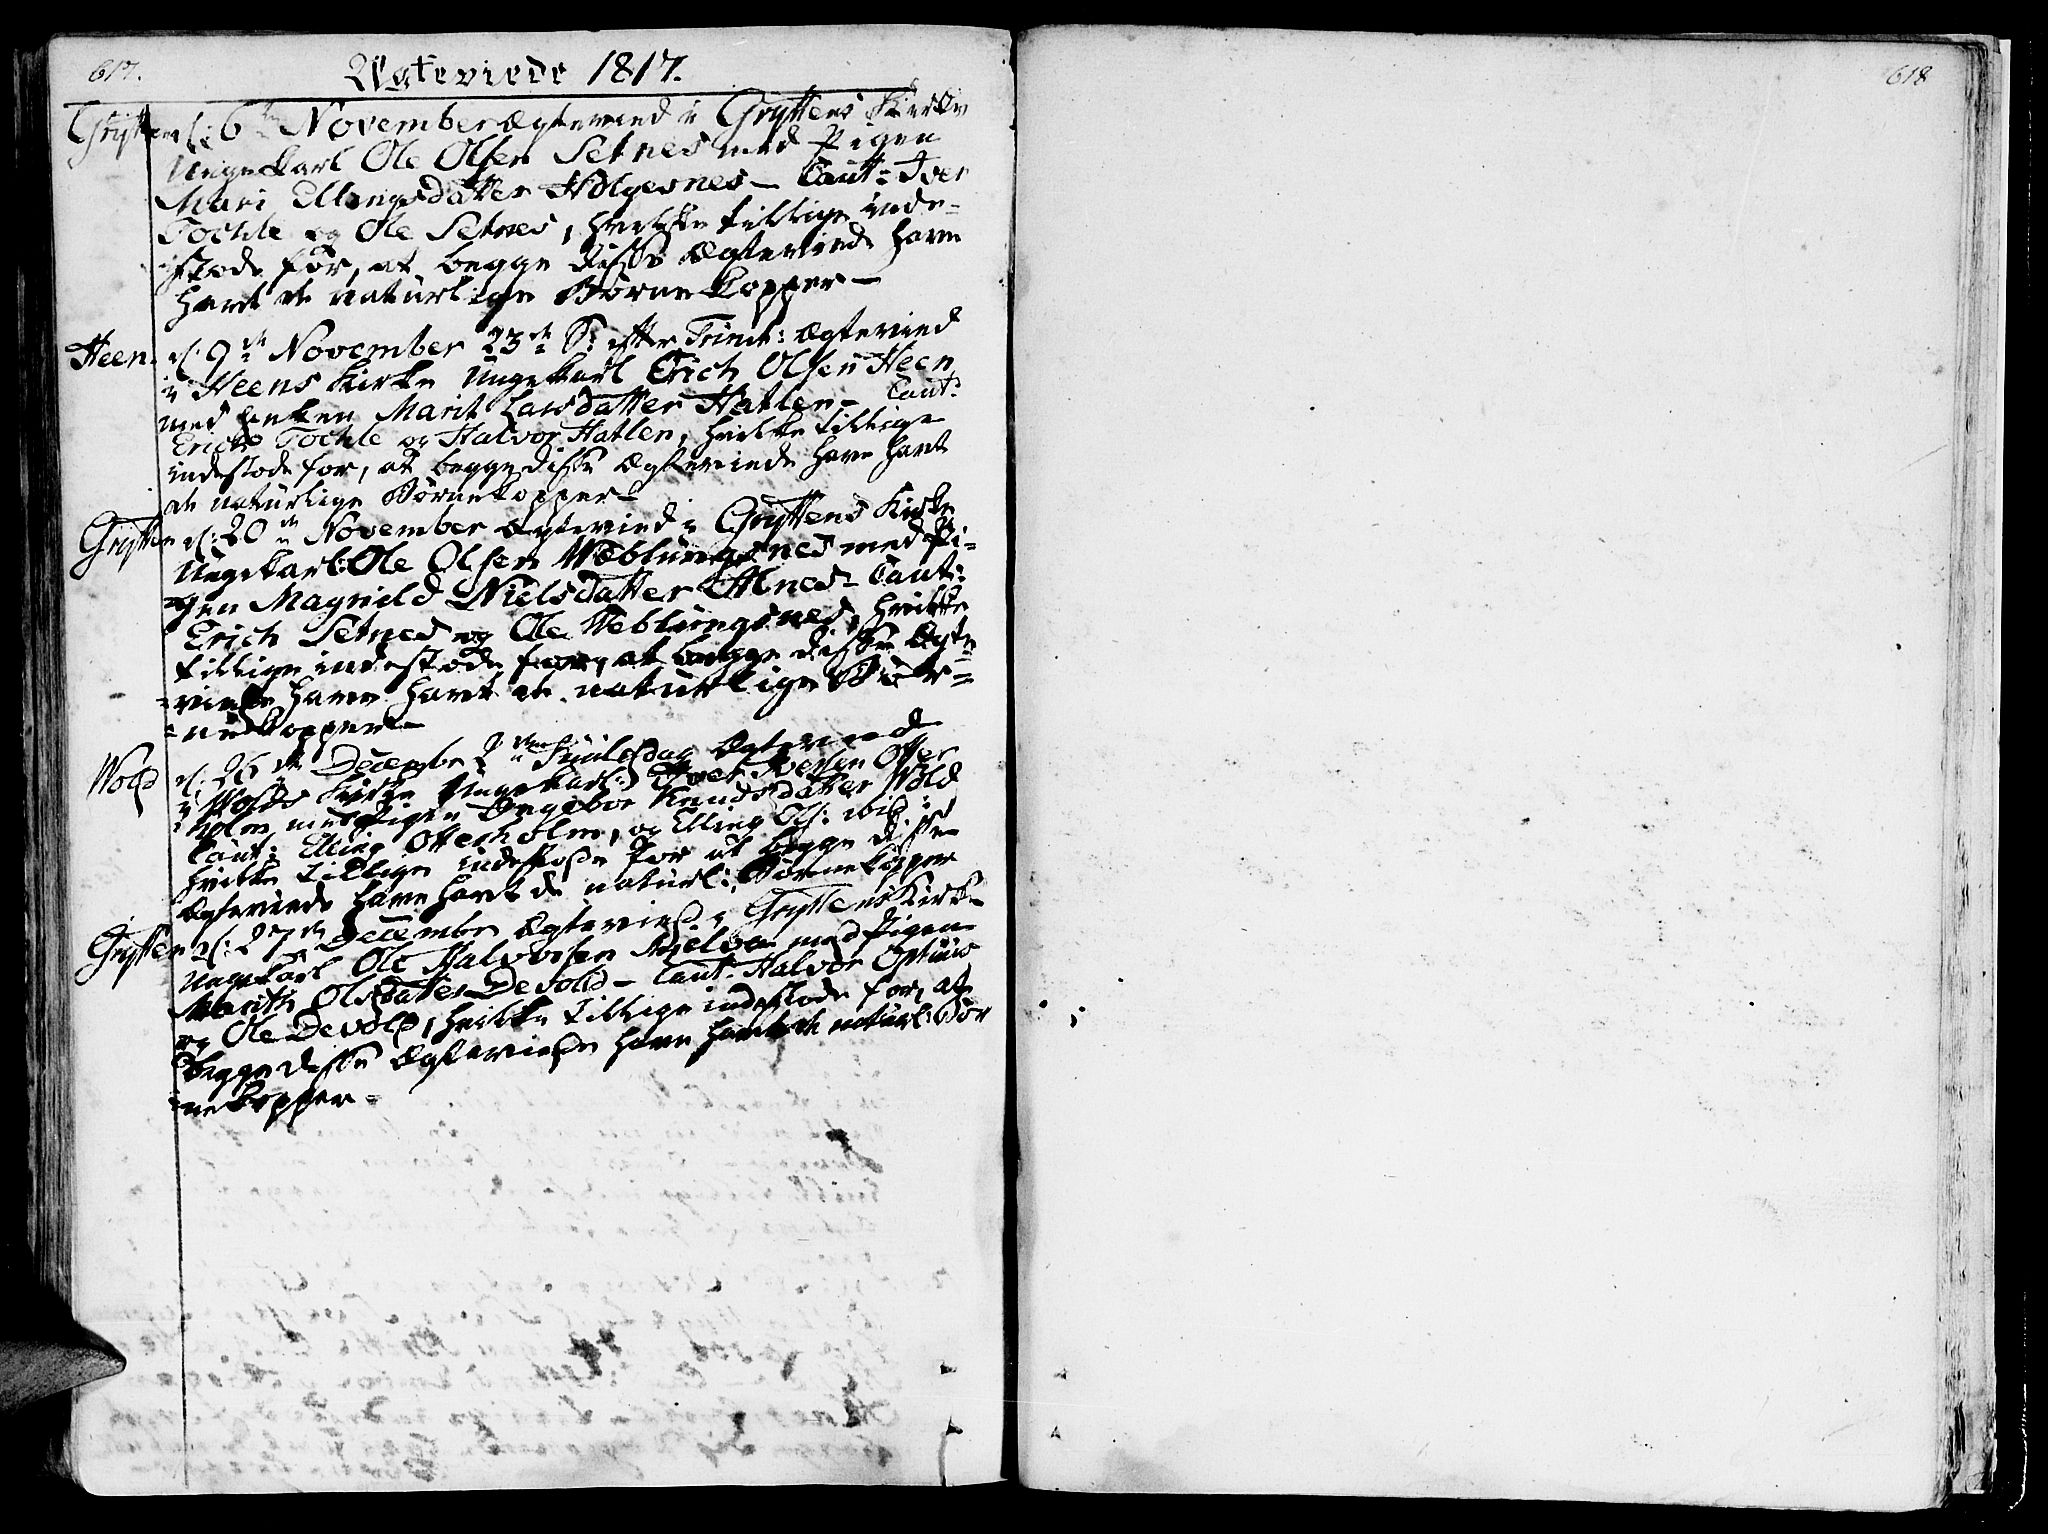 617.
Ægteviede 1817.
Grytten d: 6te November Ægtevied i Gryttens Kirke
Ungekarl Ole Olsen Setnes med Pigen
Mari Ellingsdatter Holgesnes – Caut: Iver
Tochle og Ole Setnes, hvilke tillige inde-
stode for, at begge disse Ægteviede have
havt de naturlige Børnekopper –
Heen. d. 9de November 23de S: efter Trinit: Ægtevied
i Heens Kirke Ungekarl Erich Olsen Heen
med Enken Marit Larsdatter Hatlen – Caut:
Erich Tochle og Halvor Hatlen, hvilke tillige
indestode for, at begge disse Ægteviede have havt
de naturlige Børnekopper –
Grytten d: 20de November Ægtevied i Gryttens Kirke
Ungekarl: Ole Olsen Weblungsnes med Pi-
=gen Magnild Nielsdatter Alnes – Caut:
Erich Setnes og Ole Weblungsnes, hvilke
tillige indestode for, at begge disse Ægte
=viede have havt de naturlige Bør=
=nekopper –
Wold d: 26de Decembr 2den Juuledag Ægteviede
i Wolds Kirke Ungekarl: Iver Iversen Otter
holm med Pigen Ingebor Knudsdatter Wold
Caut: Elling Otterholm, og Elling Ols: ibid:
hvilke tillige indestode for at begge disse
Ægteviede have havt de naturl: Børnekopper
Grytten d: 27de Decembr Ægteviede i Gryttens Kirke
Ungekarl Ole Halvorsen Mjelva med Pigen
Marith Olsdatter Devold – Caut: Halvor
og Ole Devold, hvilke tillige indestode for, at
begge disse Ægteviede have havt de naturl: Bør
=nekopper –
618